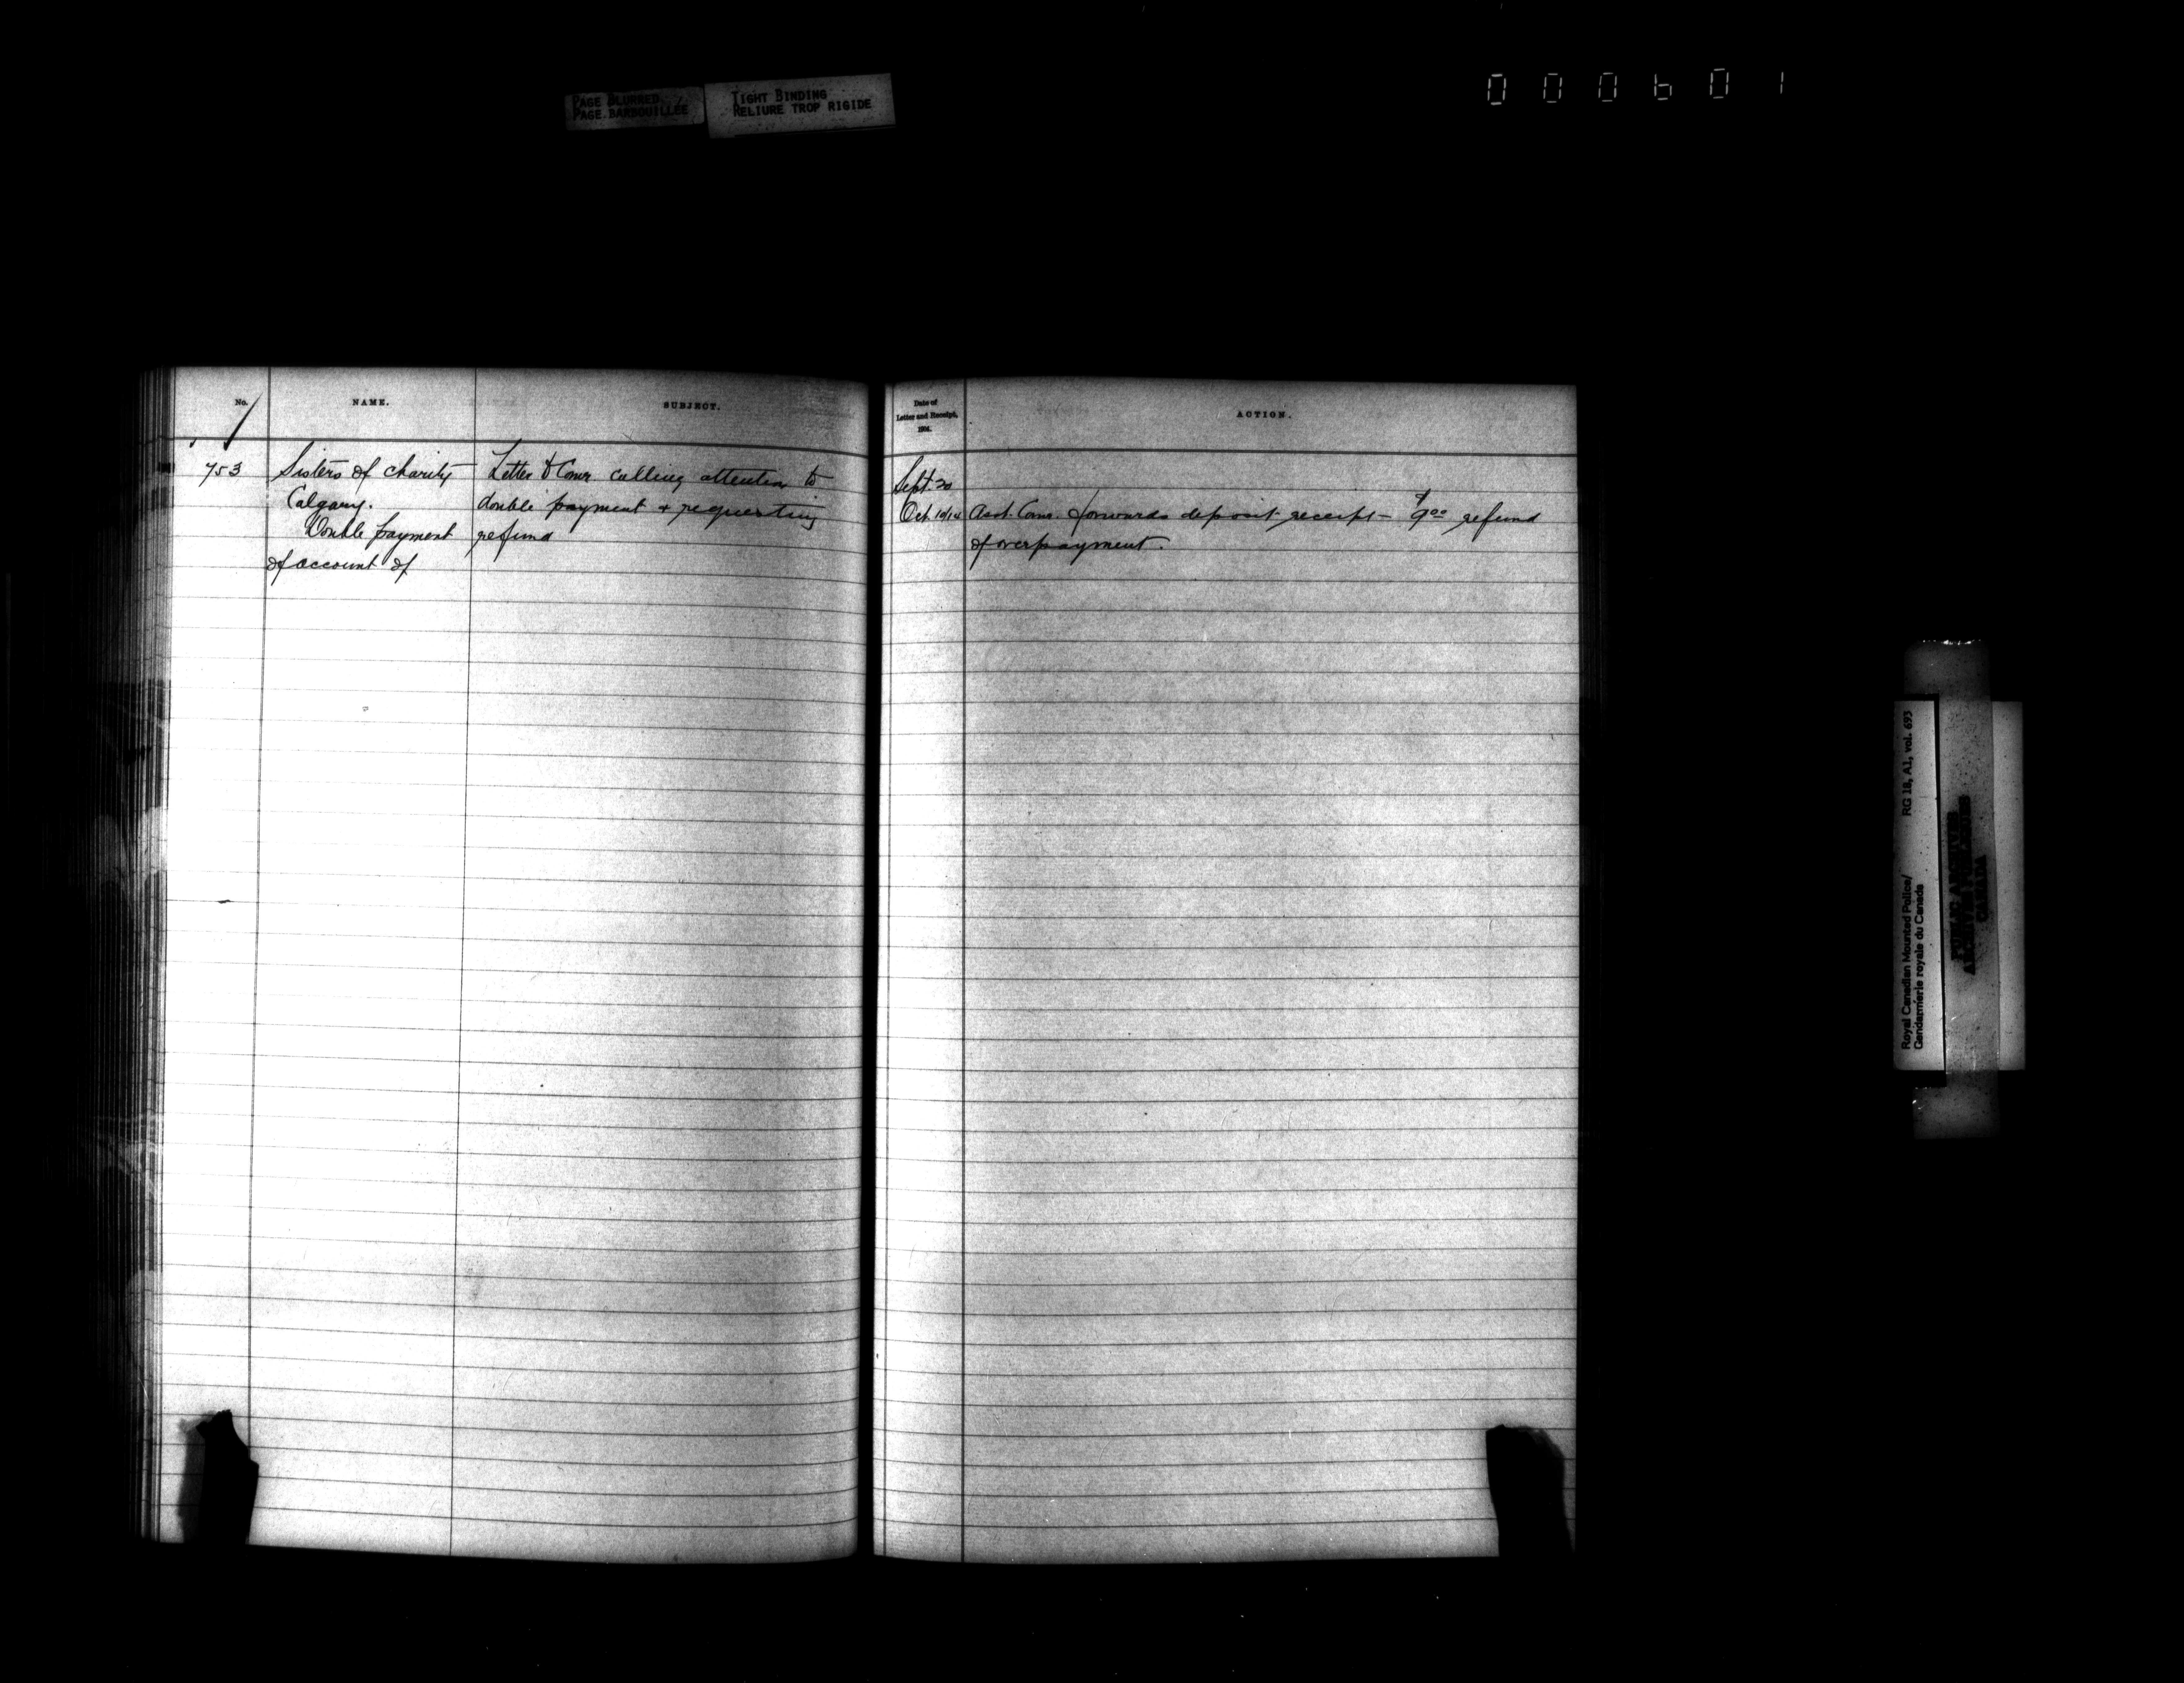 PAGE BLURRED
PAGE BARBOUILLEE
TIGHT BINDING
RELIURE TROP RIGIDE
000601
No.
NAME.
SUBJECT.
Date of
Letter and Receipt,
1904.
ACTION.
753
Sisters of Charity
Calgary.
Double payment
of account of
Letter to Comr. calling attention to
double payment + requesting
refund
Sept. 20
Oct. 10/14
Asst. Comr. forwards deposit receipt – $9.00 refund
of overpayment.
Royal Canadian Mounted Police/
Gendarmerie royale du Canada
RG 18, A1, vol. 693
PUBLIC ARCHIVES
ARCHIVES PUBLIQUES
CANADA